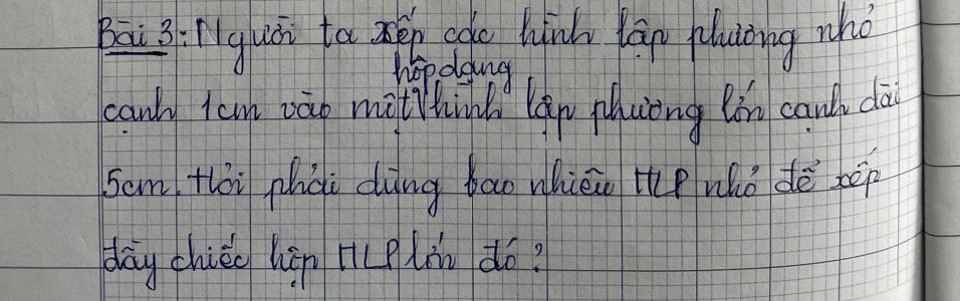 Bài 3: Người ta xếp các hình lập phương nhỏ
cạnh 1cm vào một hộp dạng hình lập phương lớn cạnh dài
5cm. Hỏi phải dùng bao nhiêu HLP nhỏ để xếp
đầy chiếc hộp HLP lớn đó?